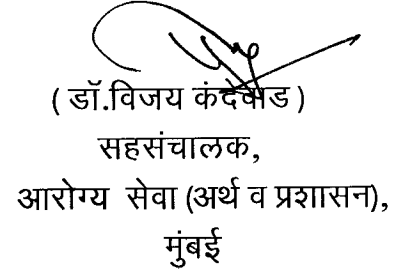 ( डॉ.विजय कंदेवाड )
सहसंचालक,
आरोग्य सेवा (अर्थ व प्रशासन),
मुंबई